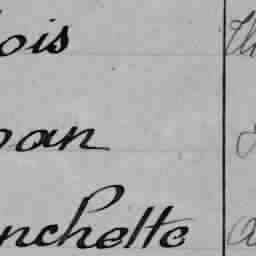 ois
oan
nchette